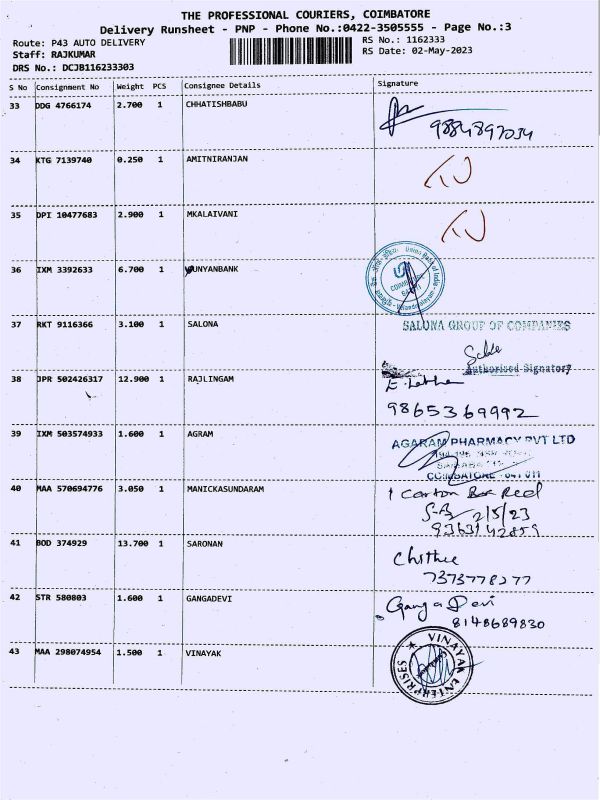 THE PROFESSIONAL COURIERS, COIMBATORE
Delivery Runsheet - PNP - Phone No.:0422-3505555 - Page No.:3
Route: P43 AUTO DELIVERY
RS No.: 1162333
Staff: RAJKUMAR
RS Date: 02-May-2023
DRS No.: DCJB116233303
S No Consignment No Weight PCS Consignee Details Signature
33 DDG 4766174 2.700 1 CHHATISHBABU
9884897034
34 KTG 7139740 0.250 1 AMITNIRANJAN
35 DPI 10477683 2.900 1 MKALAIVANI
36 IXM 3392633 6.700 1 UNYANBANK
Union Bank of India
COIMBATORE
37 RKT 9116366 3.100 1 SALONA
SALONA GROUP OF COMPANIES
Authorised Signatory
38 JPR 502426317 12.900 1 RAJLINGAM
9865369992
39 IXM 503574933 1.600 1 AGRAM
AGARAM PHARMACY PVT LTD
COIMBATORE - 641 011
40 MAA 570694776 3.050 1 MANICKASUNDARAM
1 carton Box Reel
2/5/23
9363142859
41 BOD 374929 13.700 1 SARONAN
Chithu
7373778277
42 STR 580803 1.600 1 GANGADEVI
Ganga Devi
8148689830
43 MAA 298074954 1.500 1 VINAYAK
VINAYAK ENTERPRISES